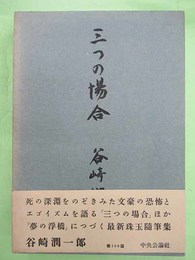 三つの場合
谷崎
死の深淵をのぞきみた文豪の恐怖と
エゴイズムを語る『三つの場合』ほか
『夢の浮橋』につづく最新珠玉随筆集
谷崎潤一郎
中央公論社